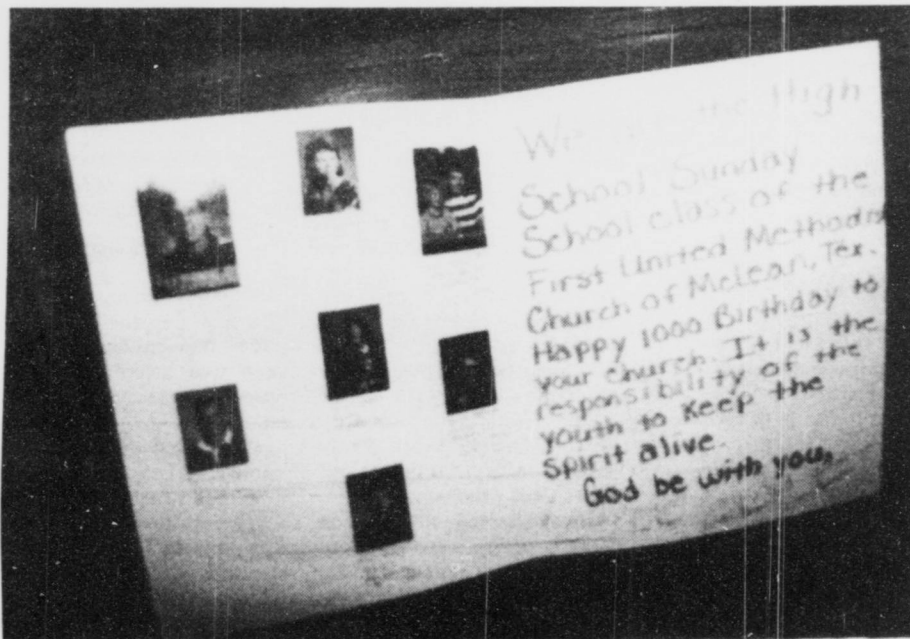 the High
School Sunday
School class of the
First United Methodist
Church of McLean, Tex.
Happy 1000 Birthday to
your church. It is the
responsibility of the
youth to keep the
spirit alive.
God be with you,